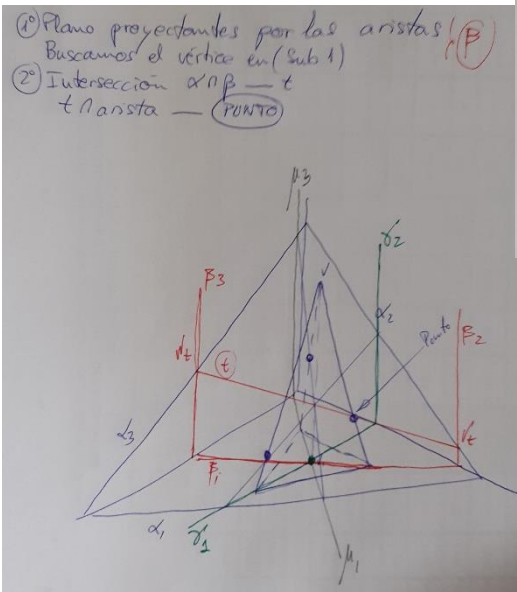 1º) Plano proyectantes por las aristas (β
Buscamos el vértice en (Sub 1)
2º) Intersección α∩β — t
t ∩ arista — PUNTO
μ3
γ2
β3
V
α2
Punto
β2
Vt
t
α3
Vt
β1
α1
γ1
μ1